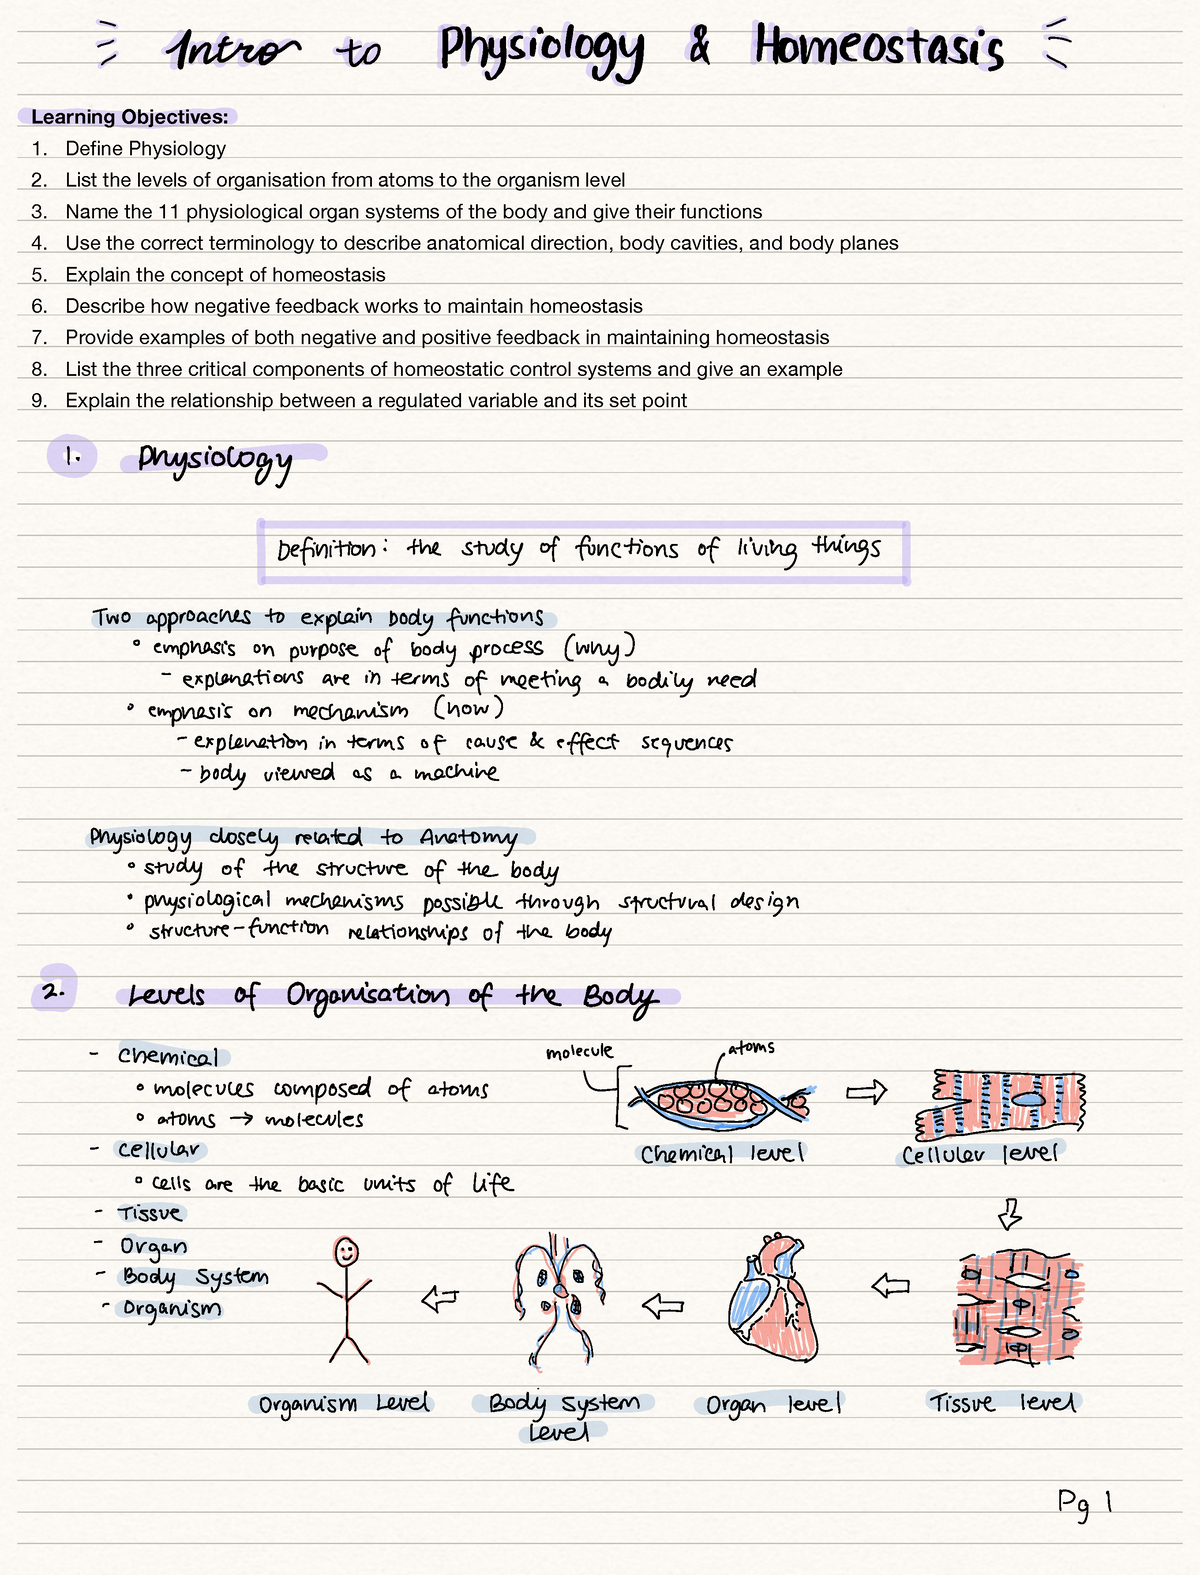 Intro to Physiology & Homeostasis
Learning Objectives:
1. Define Physiology
2. List the levels of organisation from atoms to the organism level
3. Name the 11 physiological organ systems of the body and give their functions
4. Use the correct terminology to describe anatomical direction, body cavities, and body planes
5. Explain the concept of homeostasis
6. Describe how negative feedback works to maintain homeostasis
7. Provide examples of both negative and positive feedback in maintaining homeostasis
8. List the three critical components of homeostatic control systems and give an example
9. Explain the relationship between a regulated variable and its set point
1. Physiology
Definition: the study of functions of living things
Two approaches to explain body functions
° emphasis on purpose of body process (why)
- explanations are in terms of meeting a bodily need
° emphasis on mechanism (how)
- explanation in terms of cause & effect sequences
- body viewed as a machine
Physiology closely related to Anatomy
° study of the structure of the body
• physiological mechanisms possible through structural design
° structure-function relationships of the body
2. Levels of Organisation of the Body
- Chemical
° molecules composed of atoms
° atoms → molecules
- Cellular
° cells are the basic units of life
- Tissue
- Organ
- Body System
- Organism
molecule
atoms
Chemical level
Cellular level
Organism Level
Body System
Level
Organ level
Tissue level
Pg 1